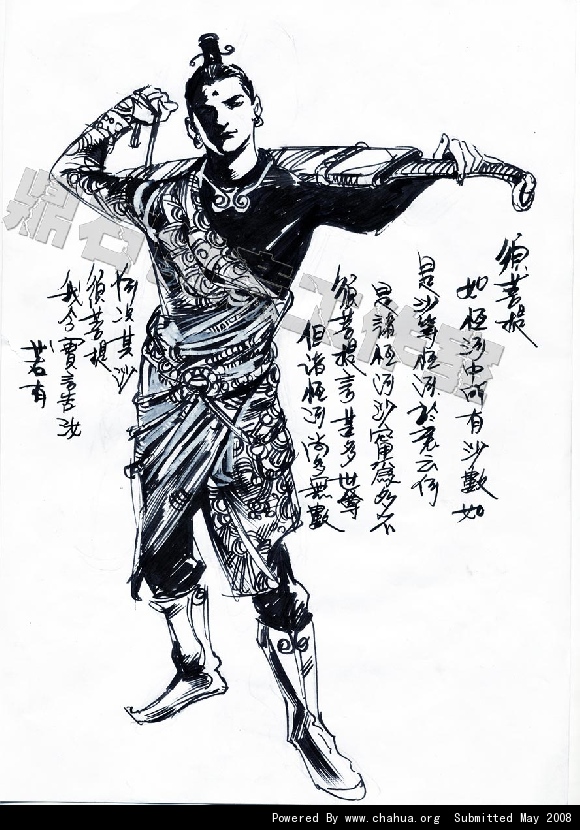 須菩提
如恒河中所有沙數如
是沙等恒河於意云何
是諸恒河沙寧為多不
須菩提言甚多世尊
但諸恒河尚多無數
何況其沙
須菩提
我今實言告汝
若有
鼎石
Powered By www.chahua.org Submitted May 2008